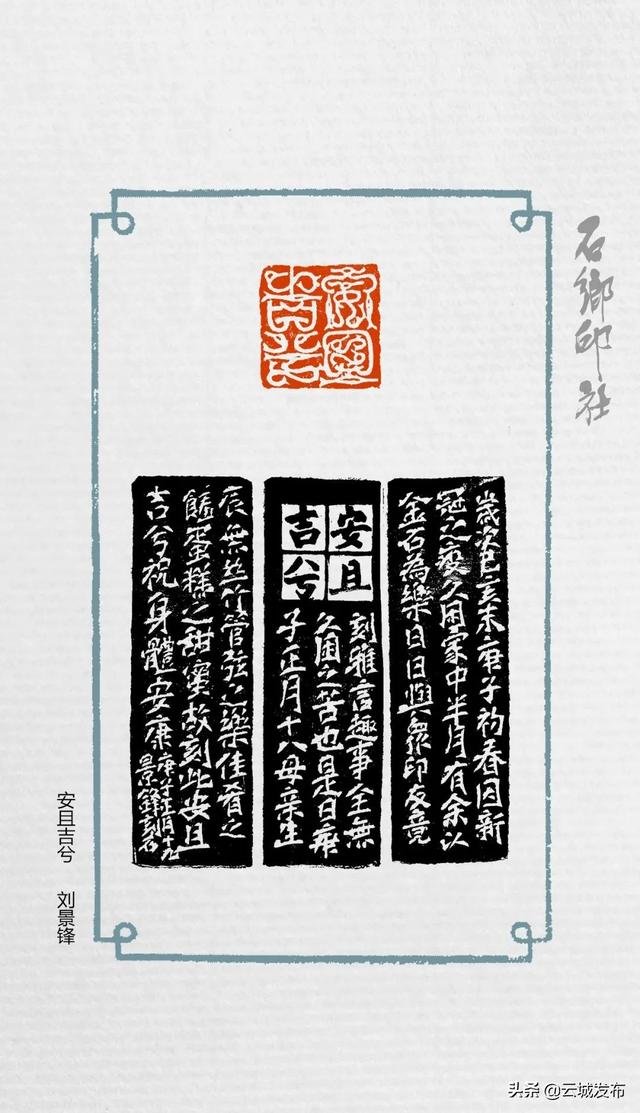 石鄉印社
安且吉兮
歲次己亥末庚子初春因新
冠之疫久困家中半月有余以
金石為樂日日與衆印友竟
安且
吉兮
刻雅言趣事全無
久困之苦也是日庚
子正月十八母亲生
辰無丝竹管弦之樂佳肴之
饈蛋糕之甜蜜故刻此安且
吉兮祝身體安康
庚子正月十九
景鋒刻石
安且吉兮 刘景锋
头条 @云城发布